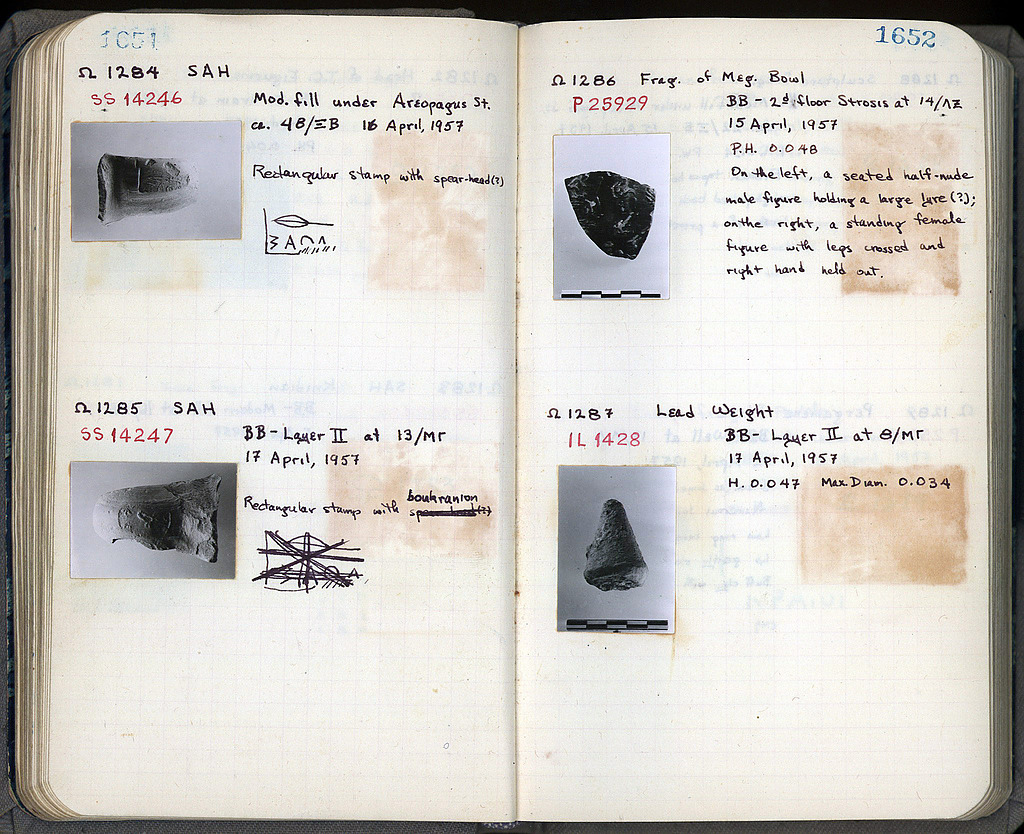 1651
Ω 1284 SAH
SS 14246
Mod. fill under Areopagus St.
ca. 48/ΞB 16 April, 1957
Rectangular stamp with spear-head(?)
Ω 1285 SAH
SS 14247
BB - Layer II at 13/ΜΓ
17 April, 1957
boukranion
Rectangular stamp with spear-head(?)
1652
Ω 1286 Frag. of Meg. Bowl
P 25929
BB - 2ⁿᵈ floor Strosis at 14/ΛΞ
15 April, 1957
P.H. 0.048
On the left, a seated half-nude
male figure holding a large lyre(?);
on the right, a standing female
figure with legs crossed and
right hand held out.
Ω 1287 Lead Weight
IL 1428
BB - Layer II at 8/ΜΓ
17 April, 1957
H. 0.047 Max. Diam. 0.034